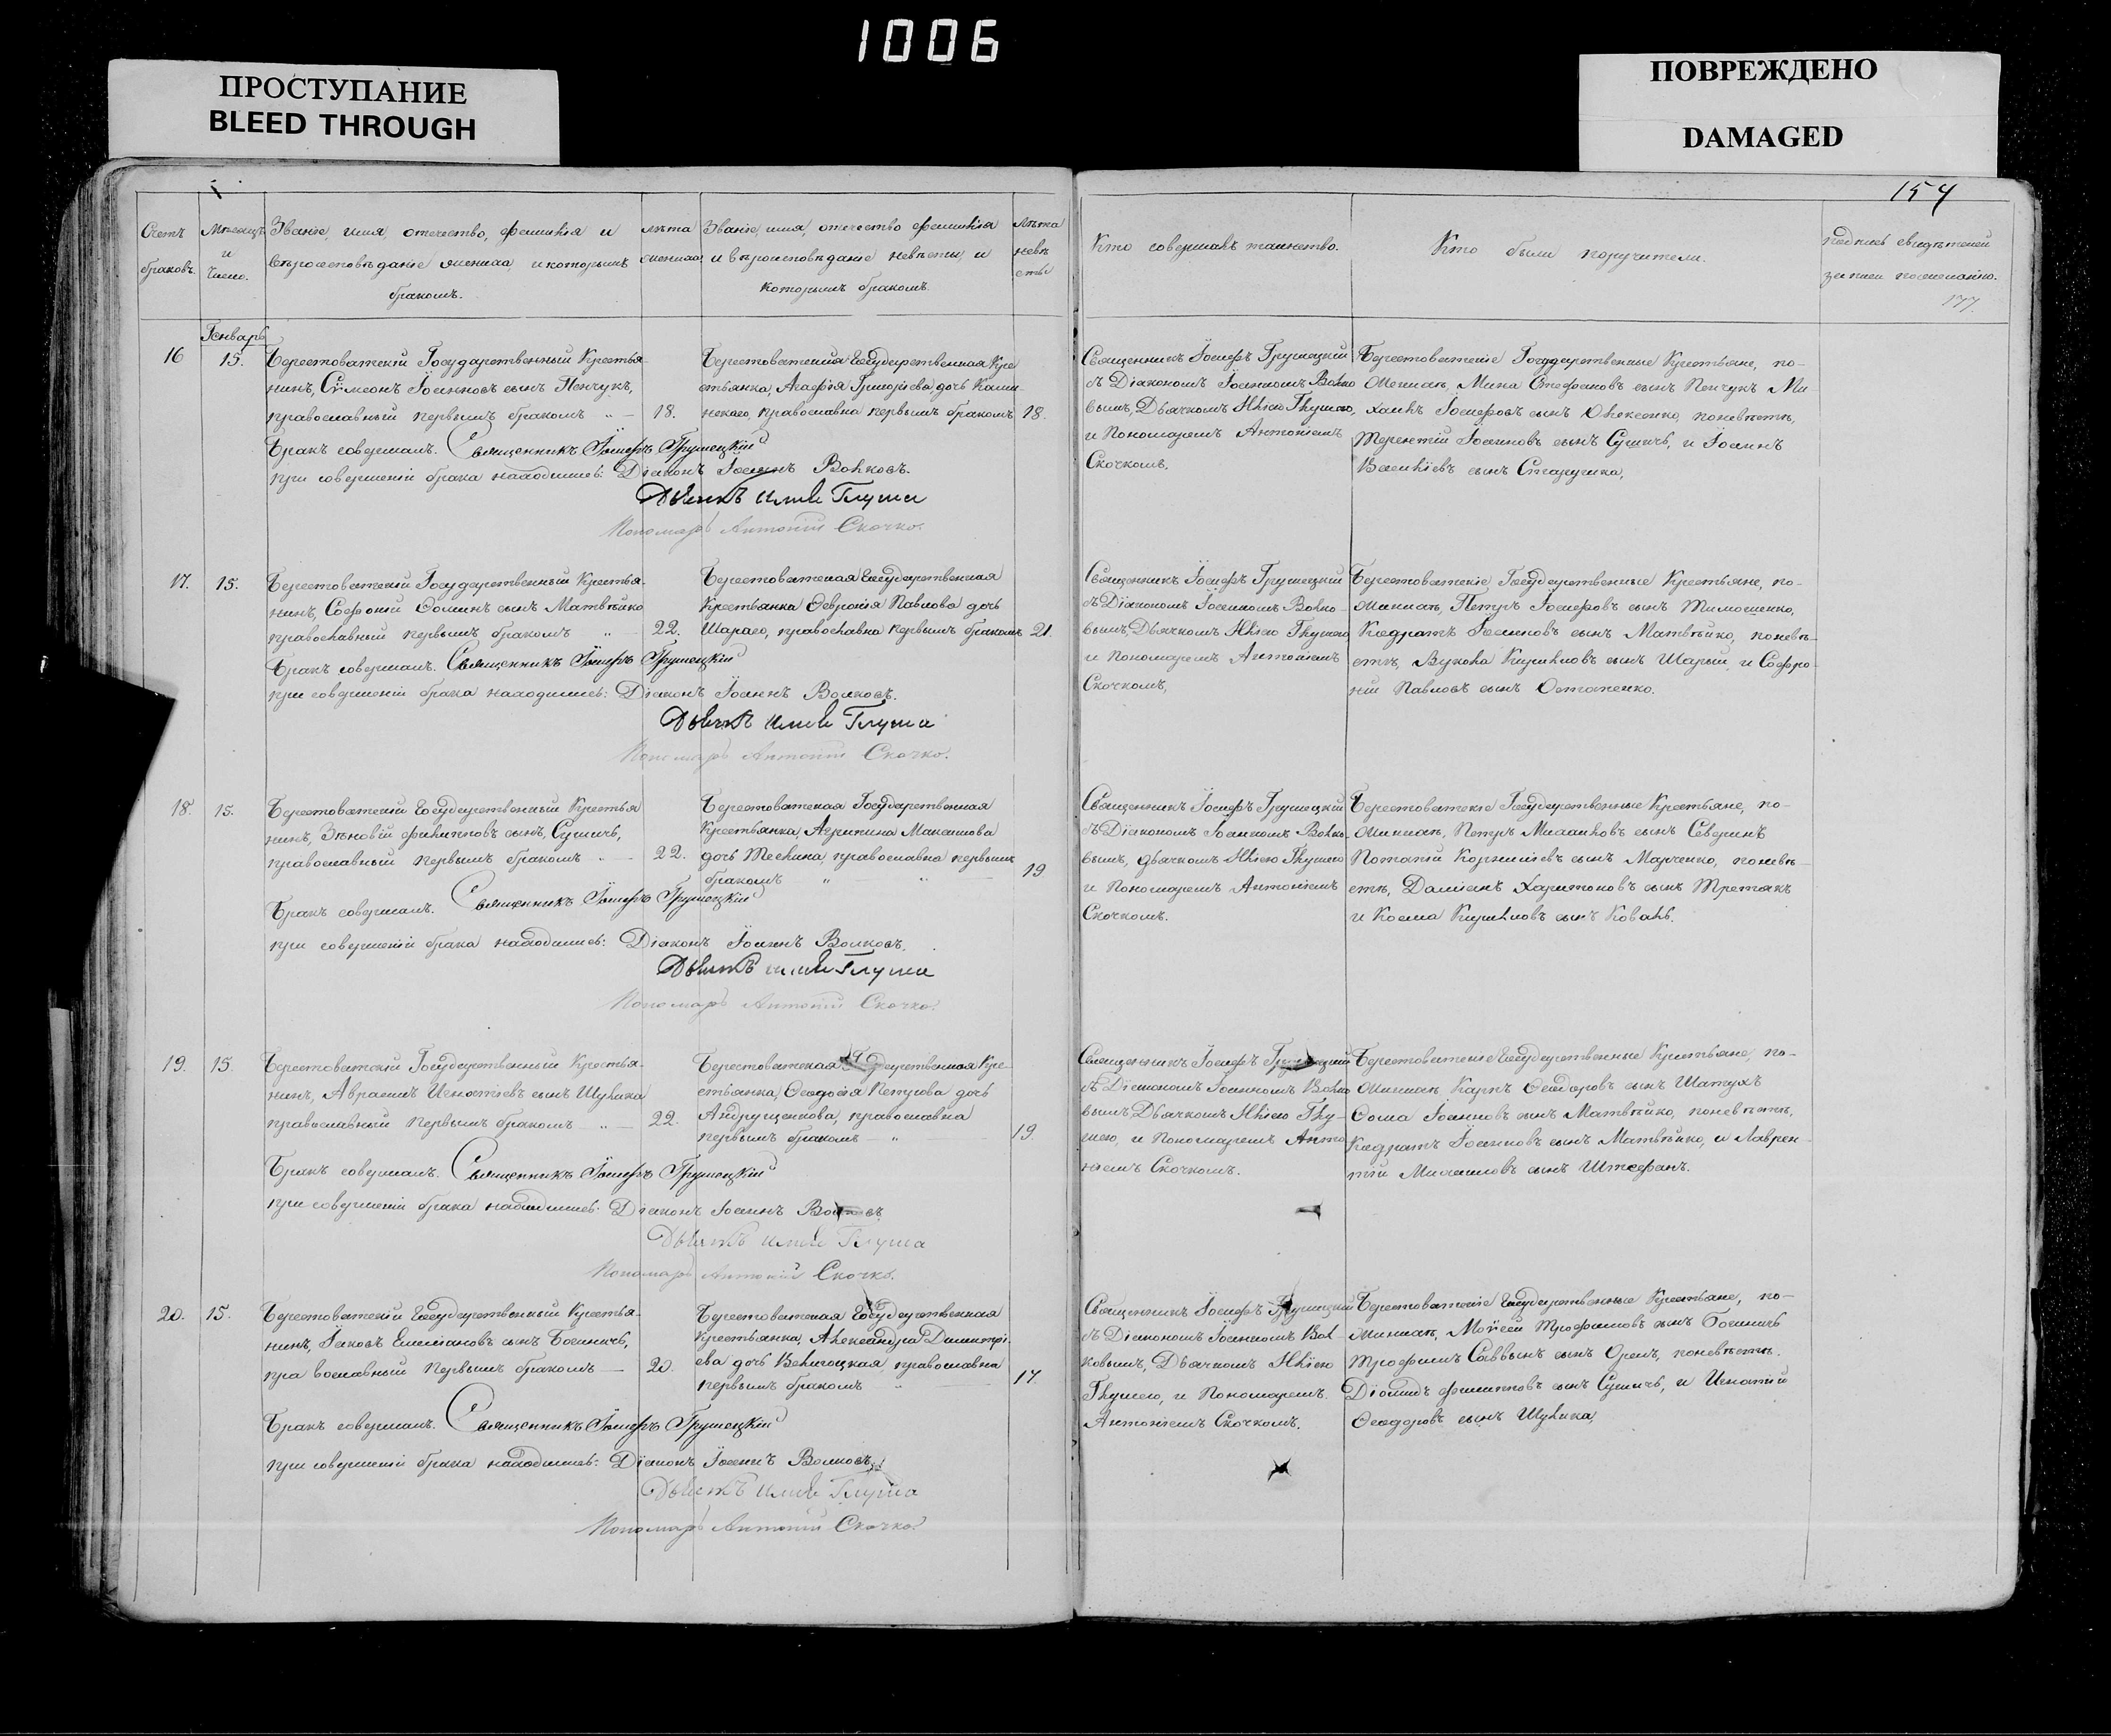 1006
ПРОСТУПАНИЕ
BLEED THROUGH
ПОВРЕЖДЕНО
DAMAGED
154
Счетъ браковъ.
Мѣсяцъ и Число.
Званіе, имя, отечество, фамилія и
вѣроисповѣданіе жениха, и которымъ
бракомъ.
лѣта жениха
Званіе, имя, отечество фамилія
и вѣроисповѣданіе невѣсты, и
которымъ бракомъ.
Лѣта невѣсты
Кто совершалъ таинство.
Кто были поручители.
подпись свидѣтелей
записи по желанію.
177.
Январь
16
15.
Берестоватскій Государственный Крестья-
нинъ, Сѵмеонъ Іоанновъ сынъ Пенчукъ,
православный первымъ бракомъ „ —
18.
Берестоватская Государственная Кре
стьянка, Агафія Григоріева дочь Калин
некаго, православна первымъ бракомъ
18.
Бракъ совершалъ. Священникъ Іосифъ Грушецкій
при совершеніи брака находились: Діаконъ Іоаннъ Волковъ.
Дьячекъ Илія Глуша
Пономарь Антоній Скочко.
Священникъ Іосифъ Грушецкій
съ Діакономъ Іоанномъ Волко
вымъ, Дьячкомъ Иліею Глушею,
и Пономаремъ Антоніемъ
Скочкомъ.
Берестоватскіе Государственные Крестьяне, по-
Женихѣ, Мина Стефановъ сынъ Пенчукъ Ми-
хаилъ Іосифовъ сынъ Олексенко, поневѣстѣ,
Терентій Іоанновъ сынъ Сушичъ, и Іоаннъ
Василіевъ сынъ Старушка,
17.
15.
Берестоватскій Государственный Крестья-
нинъ, Софоній Ѳоминъ сынъ Матвѣйко
православный первымъ бракомъ „
22.
Берестоватская Государственная
Крестьянка Ѳевронія Павлова дочь
Шараго, православна первымъ бракомъ
21.
Бракъ совершалъ. Священникъ Іосифъ Грушецкій
при совершеніи брака находились: Діаконъ Іоаннъ Волковъ.
Дьячекъ Илія Глуша
Пономарь Антоній Скочко.
Священникъ Іосифъ Грушецкій
съ Діакономъ Іоанномъ Волко-
вымъ, Дьячкомъ Иліею Глушею
и Пономаремъ Антоніемъ
Скочкомъ,
Берестоватскіе Государственные Крестьяне, по-
Женихѣ, Петръ Іосифовъ сынъ Тимошенко,
Кодратъ Іоанновъ сынъ Матвѣйко, поневѣ-
стѣ, Вукола Кирилловъ сынъ Шарый, и Софро-
ній Павловъ сынъ Остапенко.
18.
15.
Берестоватскій Государственный Крестья
нинъ, Зѣновій Филиповъ сынъ, Сушичъ,
православный первымъ бракомъ „ —
22.
Берестоватская Государственная
Крестьянка, Агрипина Максимова
дочь Теслина, православна первымъ
бракомъ „ „
19
Бракъ совершалъ. Священникъ Іосифъ Грушецкій
при совершеніи брака находились: Діаконъ Іоаннъ Волковъ.
Дьячекъ Илія Глуша
Пономарь Антоній Скочко.
Священникъ Іосифъ Грушецкій
съ Діакономъ Іоанномъ Волко
вымъ, дьячкомъ Иліею Глушею
и Пономаремъ Антоніемъ
Скочкомъ.
Берестоватскіе Государственные Крестьяне, по-
Женихѣ, Петръ Михаиловъ сынъ Северинъ
Потапій Корниліевъ сынъ Марченко, поневѣ-
стѣ, Даміанъ Харитоновъ сынъ Третякъ
и Косма Кирилловъ сынъ Коваль.
19.
15.
Берестоватскій Государственный Крестья-
нинъ, Авраамъ Игнатіевъ сынъ Шулика
православный первымъ бракомъ — „ —
22.
Берестоватская Государственная Кре-
стьянка, Ѳеодосія Петрова дочь
Андрущенкова, православна
первымъ бракомъ — „
19.
Бракъ совершалъ. Священникъ Іосифъ Грушецкій
при совершеніи брака находились: Діаконъ Іоаннъ Волковъ
Дьячекъ Илія Глуша
Пономарь Антоній Скочко.
Священникъ Іосифъ Грушецкій
съ Діакономъ Іоанномъ Волко
вымъ, Дьячкомъ Иліею Глу-
шею, и Пономаремъ Анто
ніемъ Скочкомъ.
Берестоватскіе Государственные Крестьяне, по-
Женихѣ Карпъ Ѳеодоровъ сынъ Шатухъ
Ѳома Іоанновъ сынъ Матвѣйко, поневѣстѣ,
Кодратъ Іоанновъ сынъ Матвѣйко, и Лаврен-
тій Михаиловъ сынъ Штефанъ.
20.
15.
Берестоватскій Государственный Крестья-
нинъ, Іаковъ Емиліановъ сынъ Босничъ,
православный Первымъ бракомъ —
20.
Берестоватская Государственная
Крестьянка, Александра Димитрі-
ева дочь Велигоцкая, православна
первымъ бракомъ „
17.
Бракъ совершалъ. Священникъ Іосифъ Грушецкій
при совершеніи брака находились: Діаконъ Іоаннъ Волковъ
Дьячекъ Илія Глуша
Пономарь Антоній Скочко.
Священникъ Іосифъ Грушецкій
съ Діакономъ Іоанномъ Вол-
ковымъ, Дьячкомъ Иліею
Глушею, и Пономаремъ
Антоніемъ Скочкомъ.
Берестоватскіе Государственные Крестьяне, по-
Женихѣ, Моѵсей Трофимовъ сынъ Босничъ
Трофимъ Саввинъ сынъ Орелъ, поневѣстѣ.
Діомидъ Филиповъ сынъ Сушичъ, и Игнатій
Ѳеодоровъ сынъ Шулика,